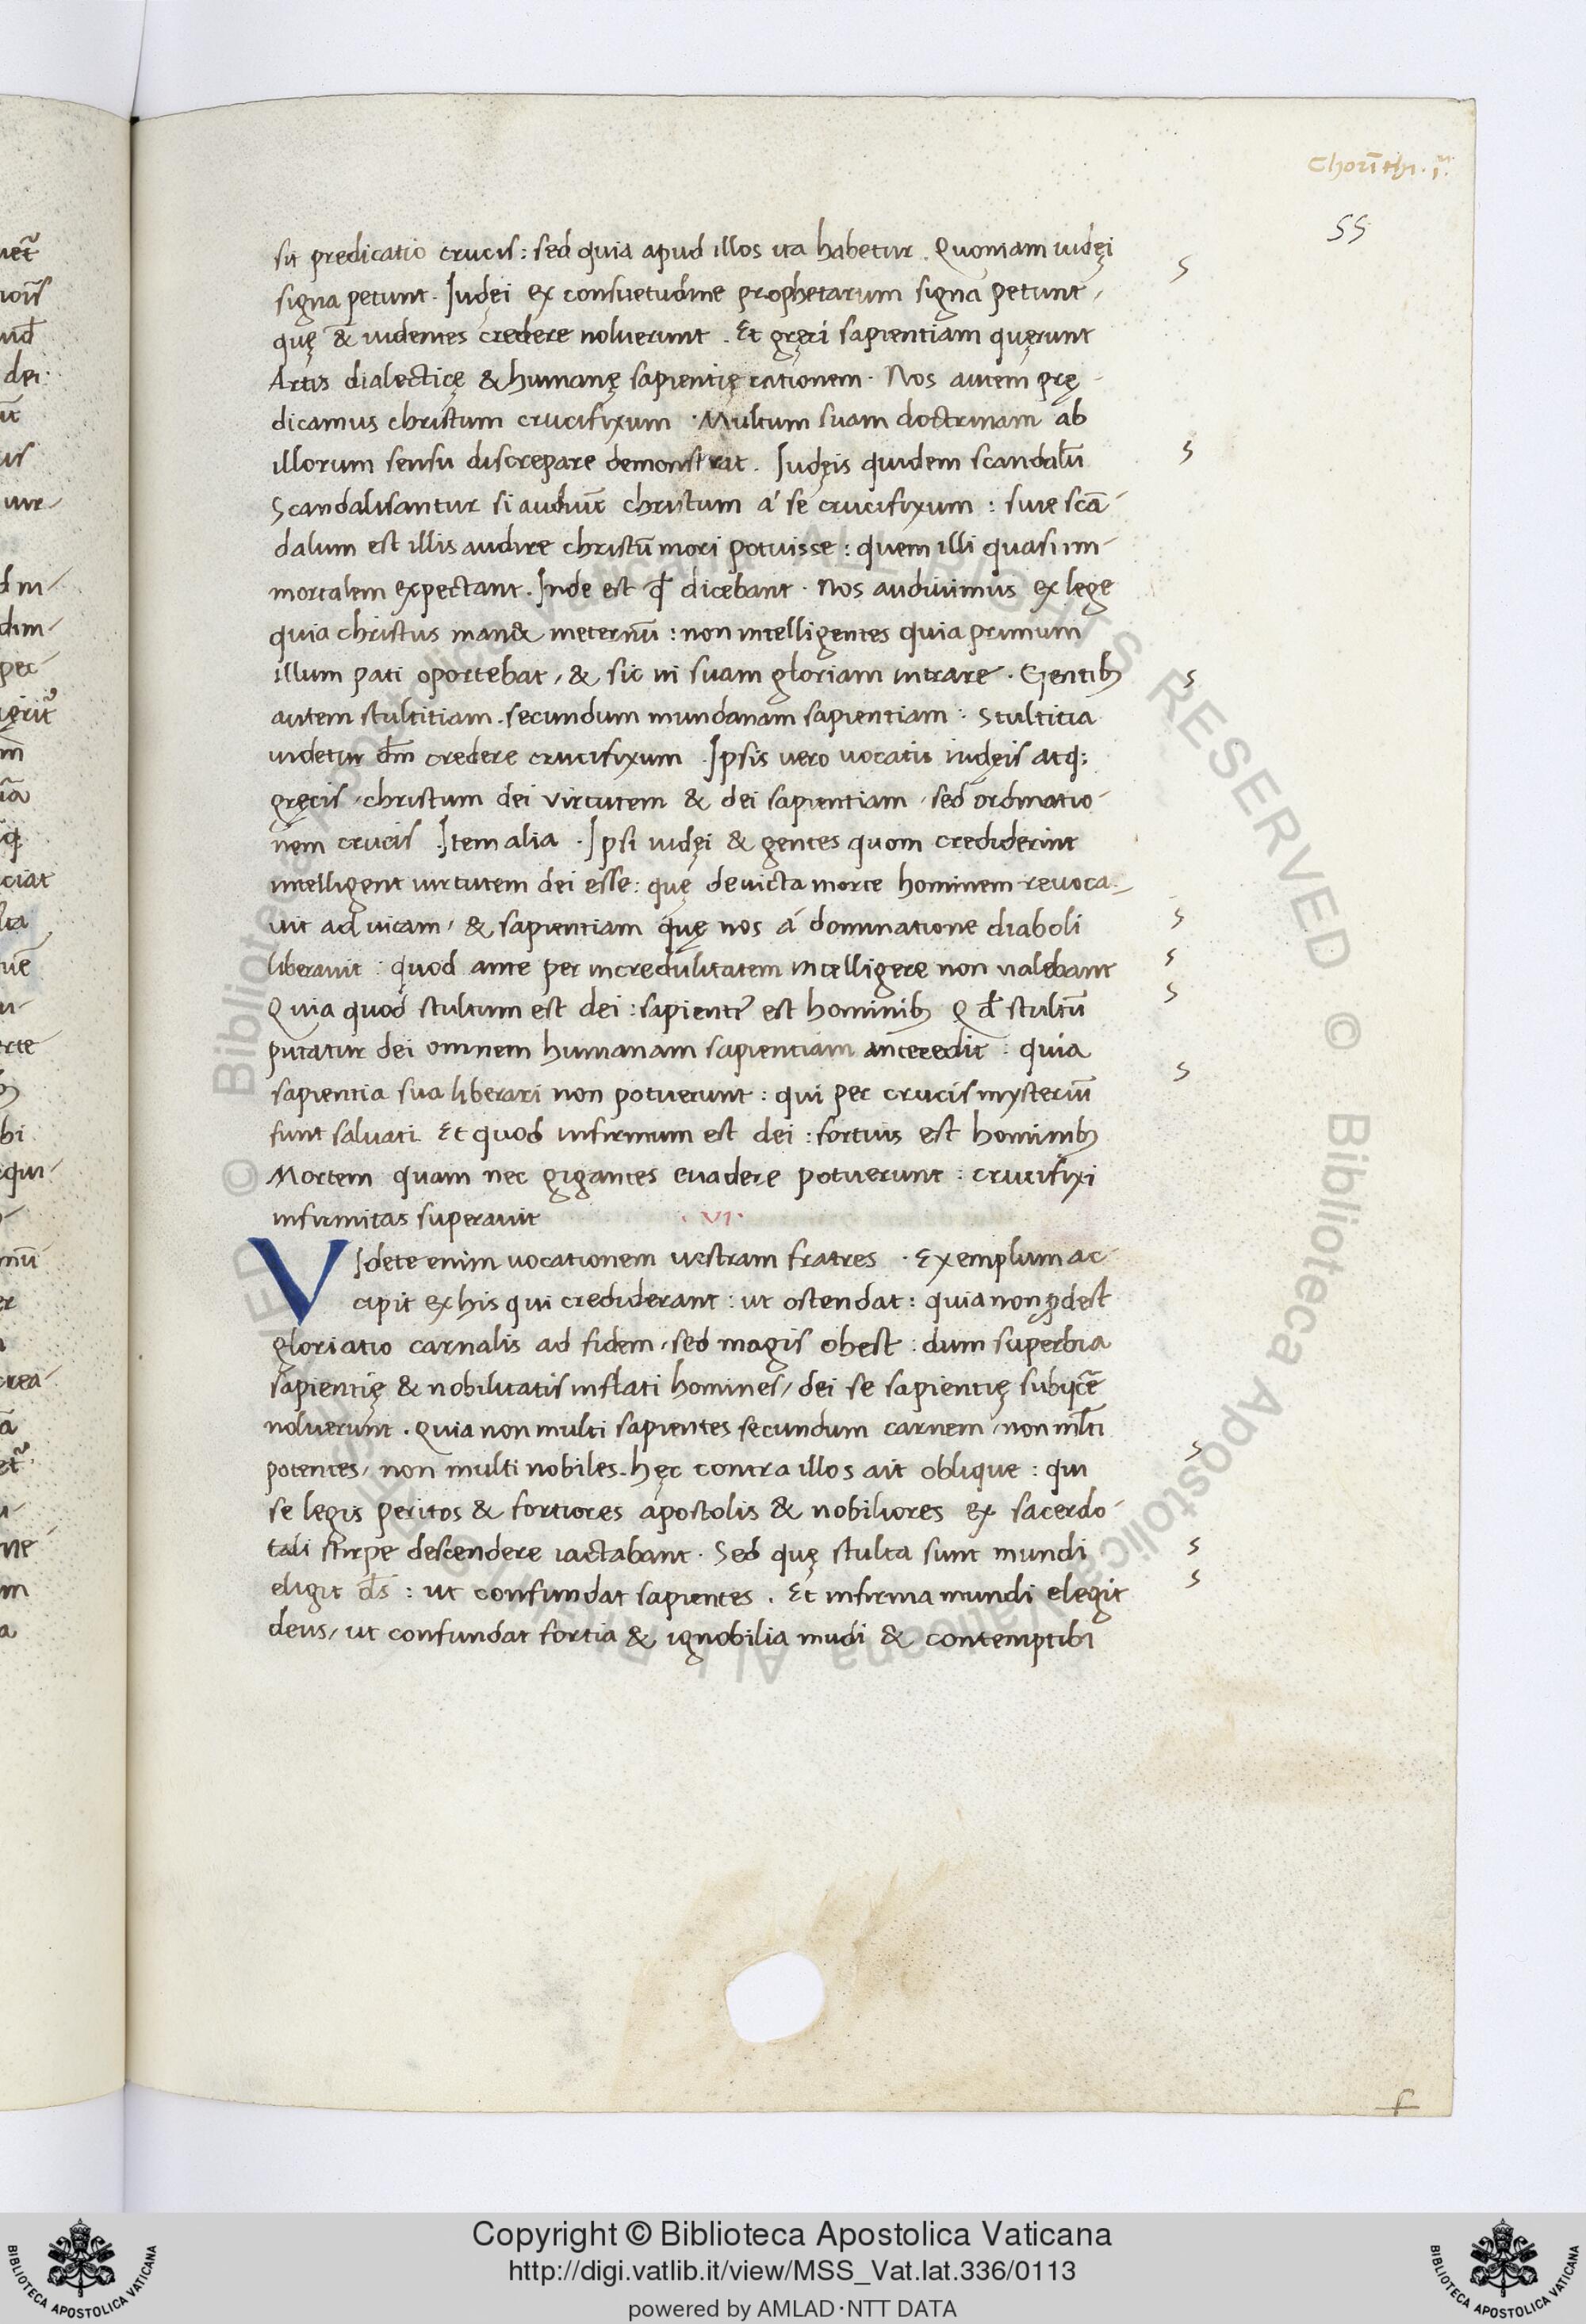 Chorīthi. i.ᵃ
55
sit predicatio crucis : sed quia apud illos ita habetur . Quoniam iudęi
signa petunt . Iudęi ex consuetudine prophetarum signa petunt /
quę & uidentes credere noluerunt . Et gręci sapientiam quęrunt
Artis dialecticę & humanę sapientię rationem . Nos autem prę-
dicamus christum crucifixum . Multum suam doctrinam ab
illorum sensu discrepare demonstrat . Iudęis quidem scandalū
Scandalisantur si audiūt christum á se crucifixum : siue scā-
dalum est illis audire christū mori potuisse : quem illi quasi im-
mortalem expectant . Inde est qđ dicebant . Nos audiuimus ex lege
quia christus man& ineternū : non intelligentes quia primum
illum pati oportebat / & sic in suam gloriam intrare . Gentibꝫ
autem stultitiam . secundum mundanam sapientiam : stultitia
uidetur dm̄ credere crucifixum . Ipsis vero uocatis iudęis atq;
gręcis / christum dei virtutem & dei sapientiam / sed ordinatio-
nem crucis . Item alia . Ipsi iudęi & gentes quom crediderint
intelligent uirtutem dei esse : quę deuicta morte hominem reuoca-
uit ad uitam / & sapientiam quę nos á dominatione diaboli
liberauit : quod ante per incredulitatem intelligere non ualebant
Quia quod stultum est dei : sapientiꝰ est hominibꝫ Qđ stultū
putatur dei omnem humanam sapientiam antecedit : quia
sapientia sua liberari non potuerunt : qui per crucis mysteriū
sunt saluati Et quod infirmum est dei : fortius est hominibꝫ
Mortem quam nec gigantes euadere potuerunt : crucifixi
infirmitas superauit . VI .
VIdete enim uocationem uestram fratres . Exemplum ac-
cipit ex his qui crediderant : ut ostendat : quia non ꝓdest
gloriatio carnalis ad fidem / sed magis obest : dum superbia
sapientię & nobilitatis inflati homines / dei se sapientię subijcē
noluerunt . Quia non multi sapientes secundum carnem / non ml̄ti
potentes / non multi nobiles . hęc contra illos ait oblique : qui
se legis peritos & fortiores apostolis & nobiliores ex sacerdo-
tali stirpe descendere iactabant . Sed quę stulta sunt mundi
eligit d̄s : ut confundat sapientes . Et infirma mundi elegit
deus / ut confundat fortia & ignobilia mūdi & contemptibi
f
Copyright © Biblioteca Apostolica Vaticana
http://digi.vatlib.it/view/MSS_Vat.lat.336/0113
powered by AMLAD·NTT DATA